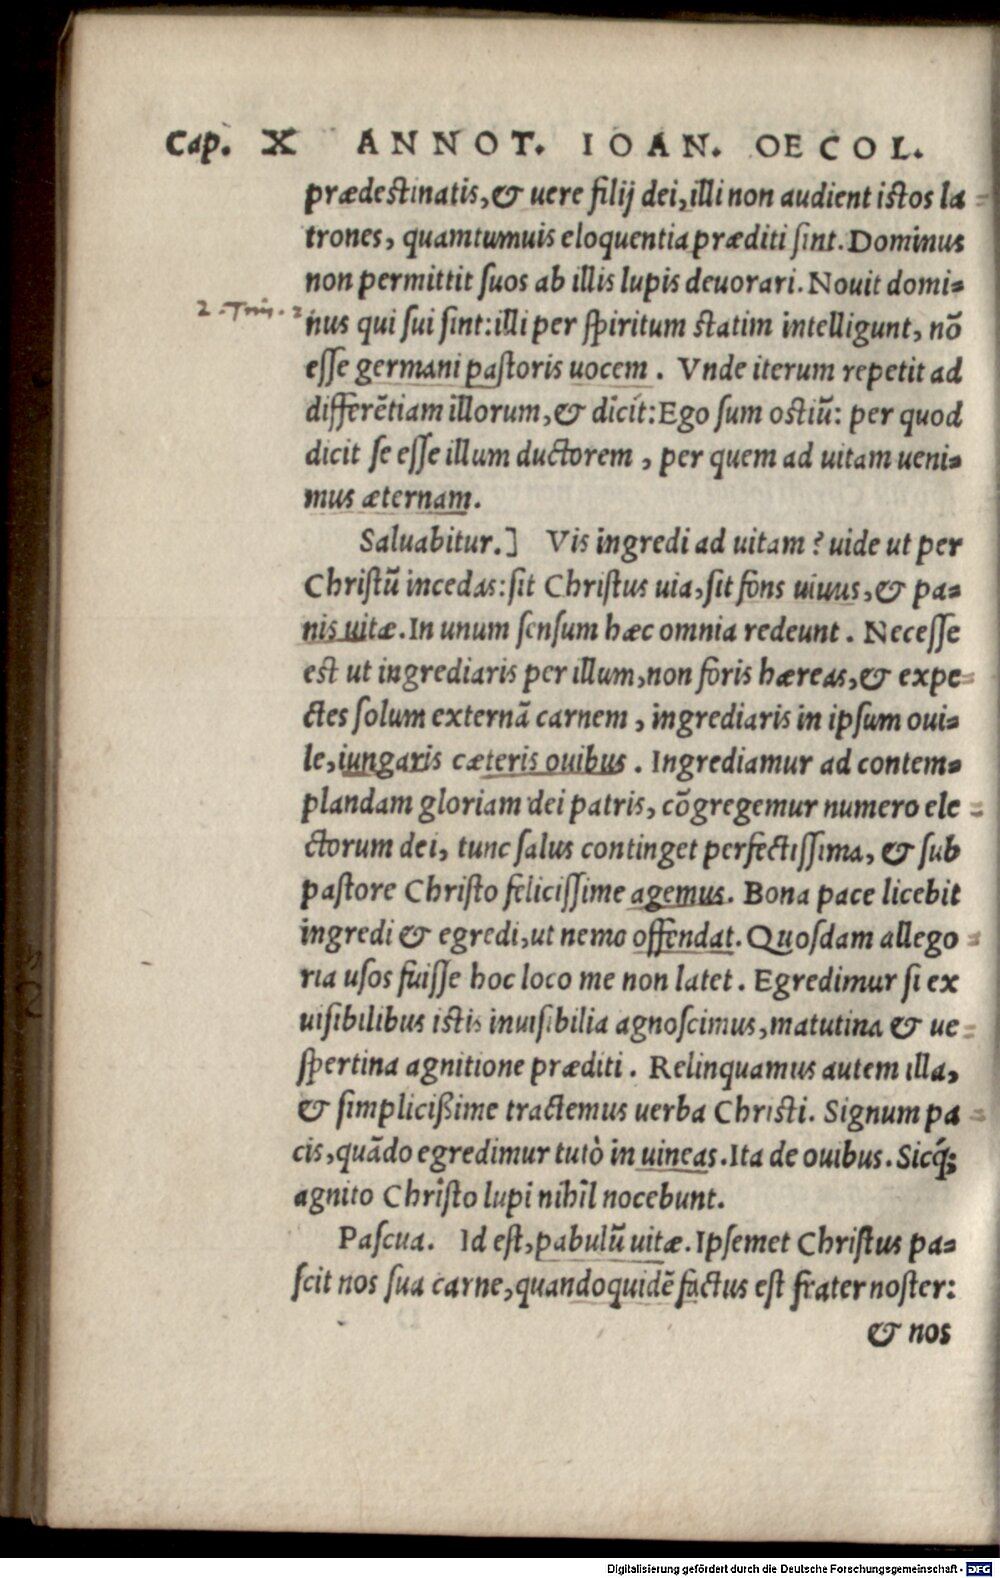 Cap. X ANNOT. IOAN. OECOL.
prædestinatis,& uere filij dei,illi non audient istos la=
trones, quamtumuis eloquentia præditi sint. Dominus
non permittit suos ab illis lupis deuorari. Nouit domi=
2. Tim. 2
nus qui sui sint:illi per spiritum statim intelligunt, nō
esse germani pastoris uocem. Vnde iterum repetit ad
differētiam illorum,& dicit:Ego sum ostiū: per quod
dicit se esse illum ductorem, per quem ad uitam ueni=
mus æternam.
Saluabitur.] Vis ingredi ad uitam? uide ut per
Christū incedas:sit Christus uia,sit fons uiuus,& pa=
nis uitæ.In unum sensum hæc omnia redeunt. Necesse
est ut ingrediaris per illum,non foris hæreas,& expe=
ctes solum externā carnem, ingrediaris in ipsum oui=
le,iungaris cæteris ouibus. Ingrediamur ad contem=
plandam gloriam dei patris, cōgregemur numero ele=
ctorum dei, tunc salus continget perfectissima, & sub
pastore Christo felicissime agemus. Bona pace licebit
ingredi & egredi,ut nemo offendat. Quosdam allego=
ria usos fuisse hoc loco me non latet. Egredimur si ex
uisibilibus istis inuisibilia agnoscimus,matutina & ue=
spertina agnitione præditi. Relinquamus autem illa,
& simplicißime tractemus uerba Christi. Signum pa=
cis,quādo egredimur tutò in uineas.Ita de ouibus. Sicq́;
agnito Christo lupi nihil nocebunt.
Pascua. Id est,pabulū uitæ.Ipsemet Christus pa=
scit nos sua carne,quandoquidē factus est frater noster:
& nos
Digitalisierung gefördert durch die Deutsche Forschungsgemeinschaft - DFG